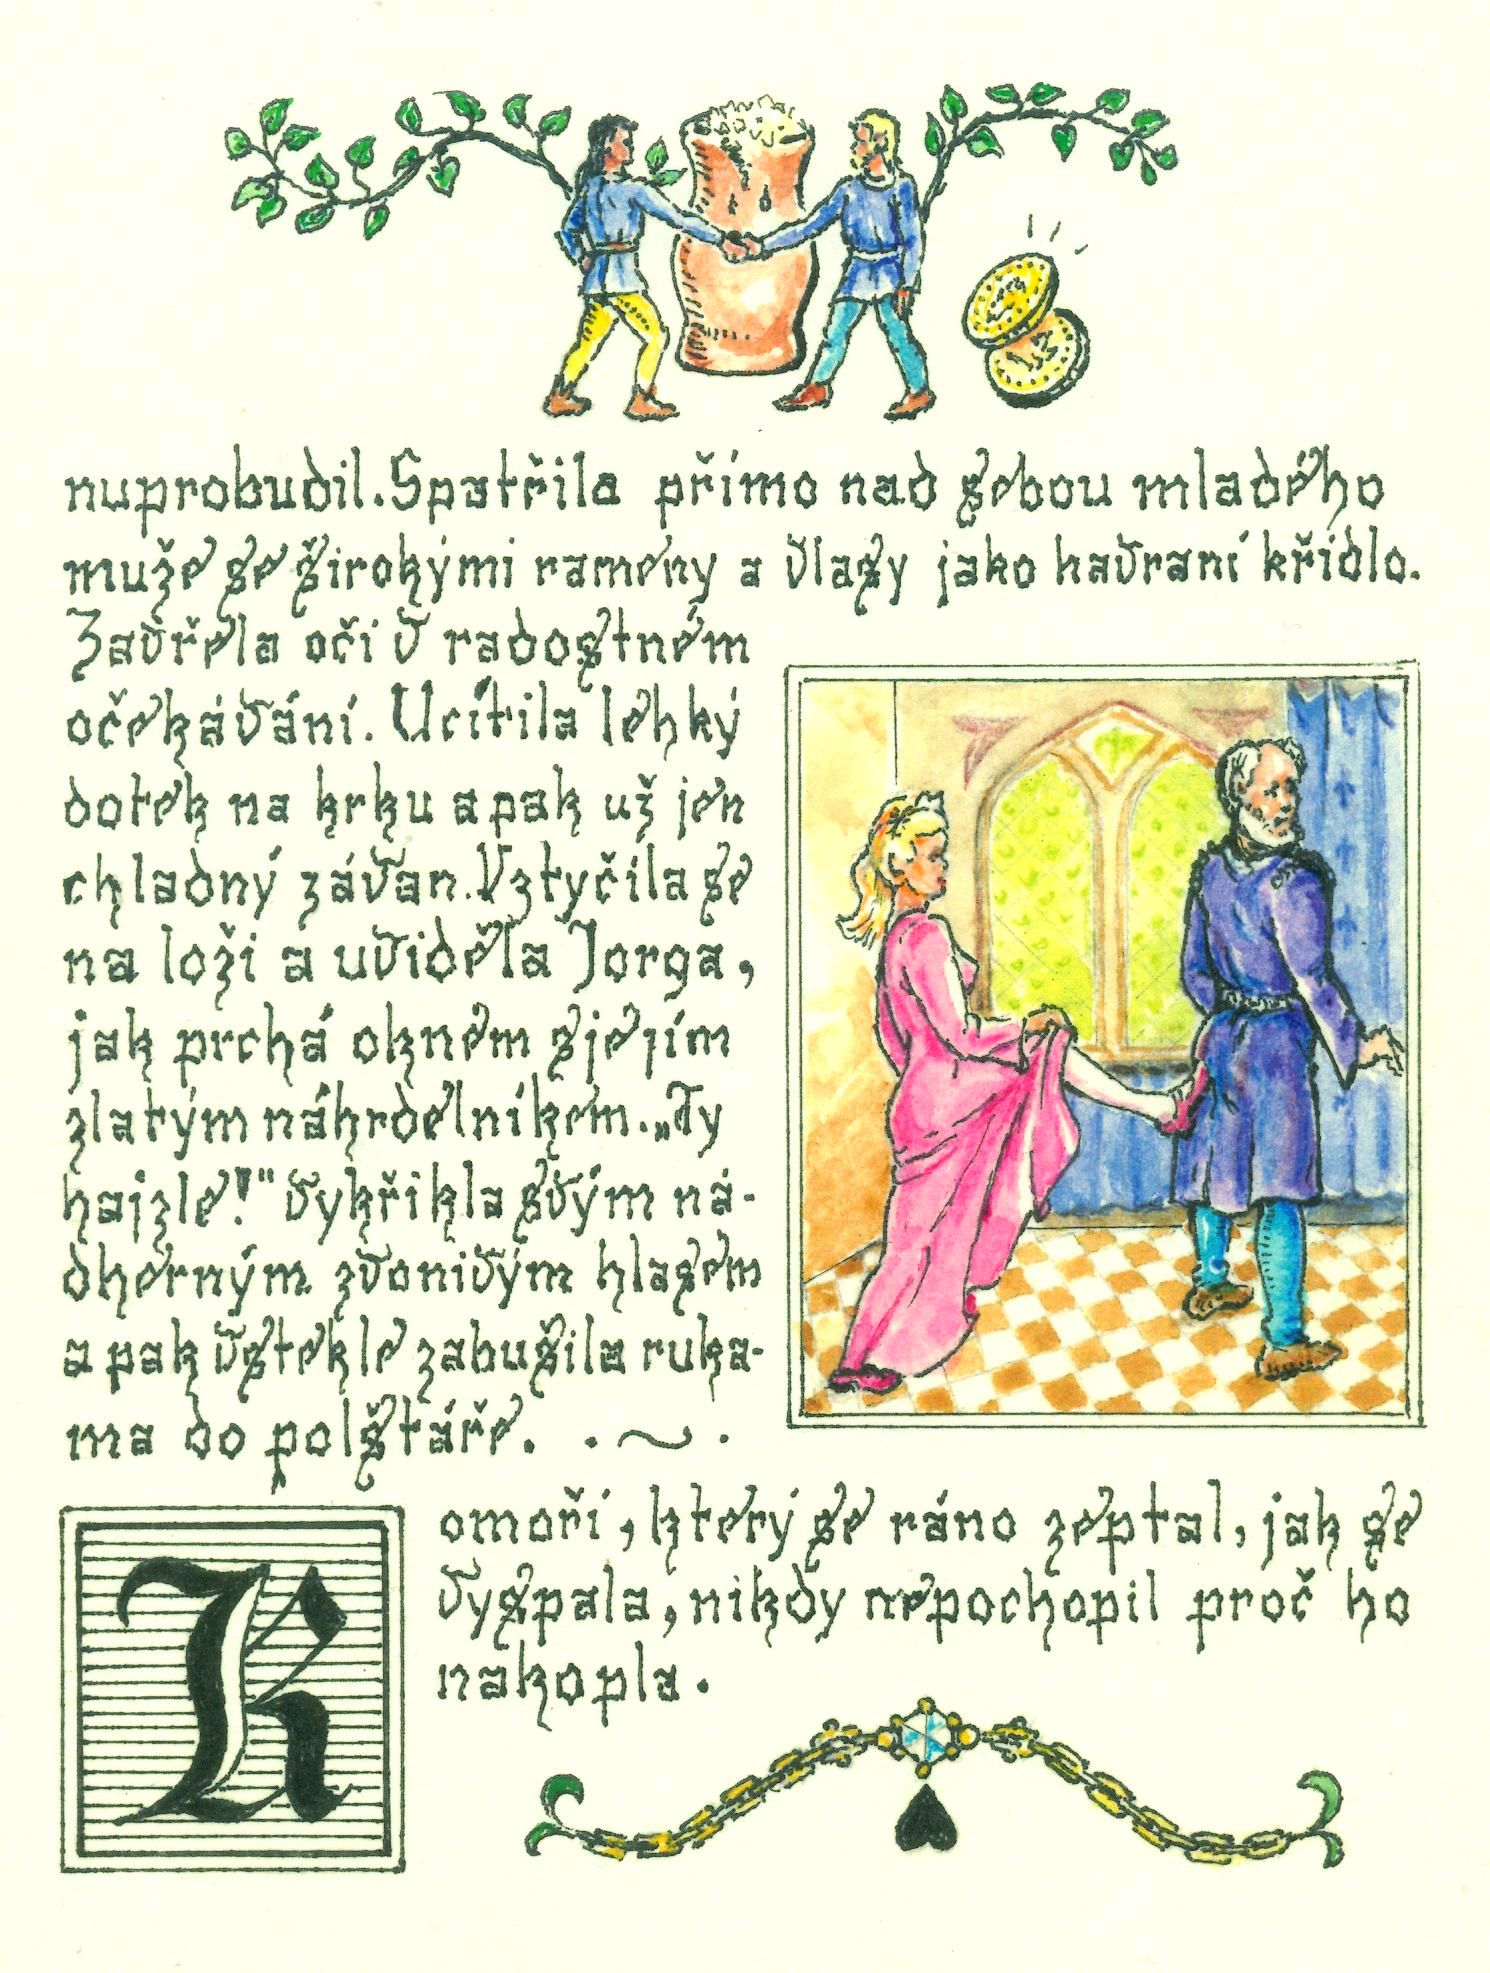 nuprobudil. Spatřila přímo nad sebou mladého
muže se širokými rameny a vlasy jako havraní křídlo.
Zavřela oči v radostném
očekávání. Ucítila lehký
dotek na krku a pak už jen
chladný závan. Vztyčila se
na loži a uviděla Jorga,
jak prchá oknem s jejím
zlatým náhrdelníkem. „Ty
hajzle!" vykřikla svým ná-
dherným zvonivým hlasem
a pak vztekle zabušila ruka-
ma do polštáře. . ~ .
Komoří, který se ráno zeptal, jak se
vyspala, nikdy nepochopil proč ho
nakopla.